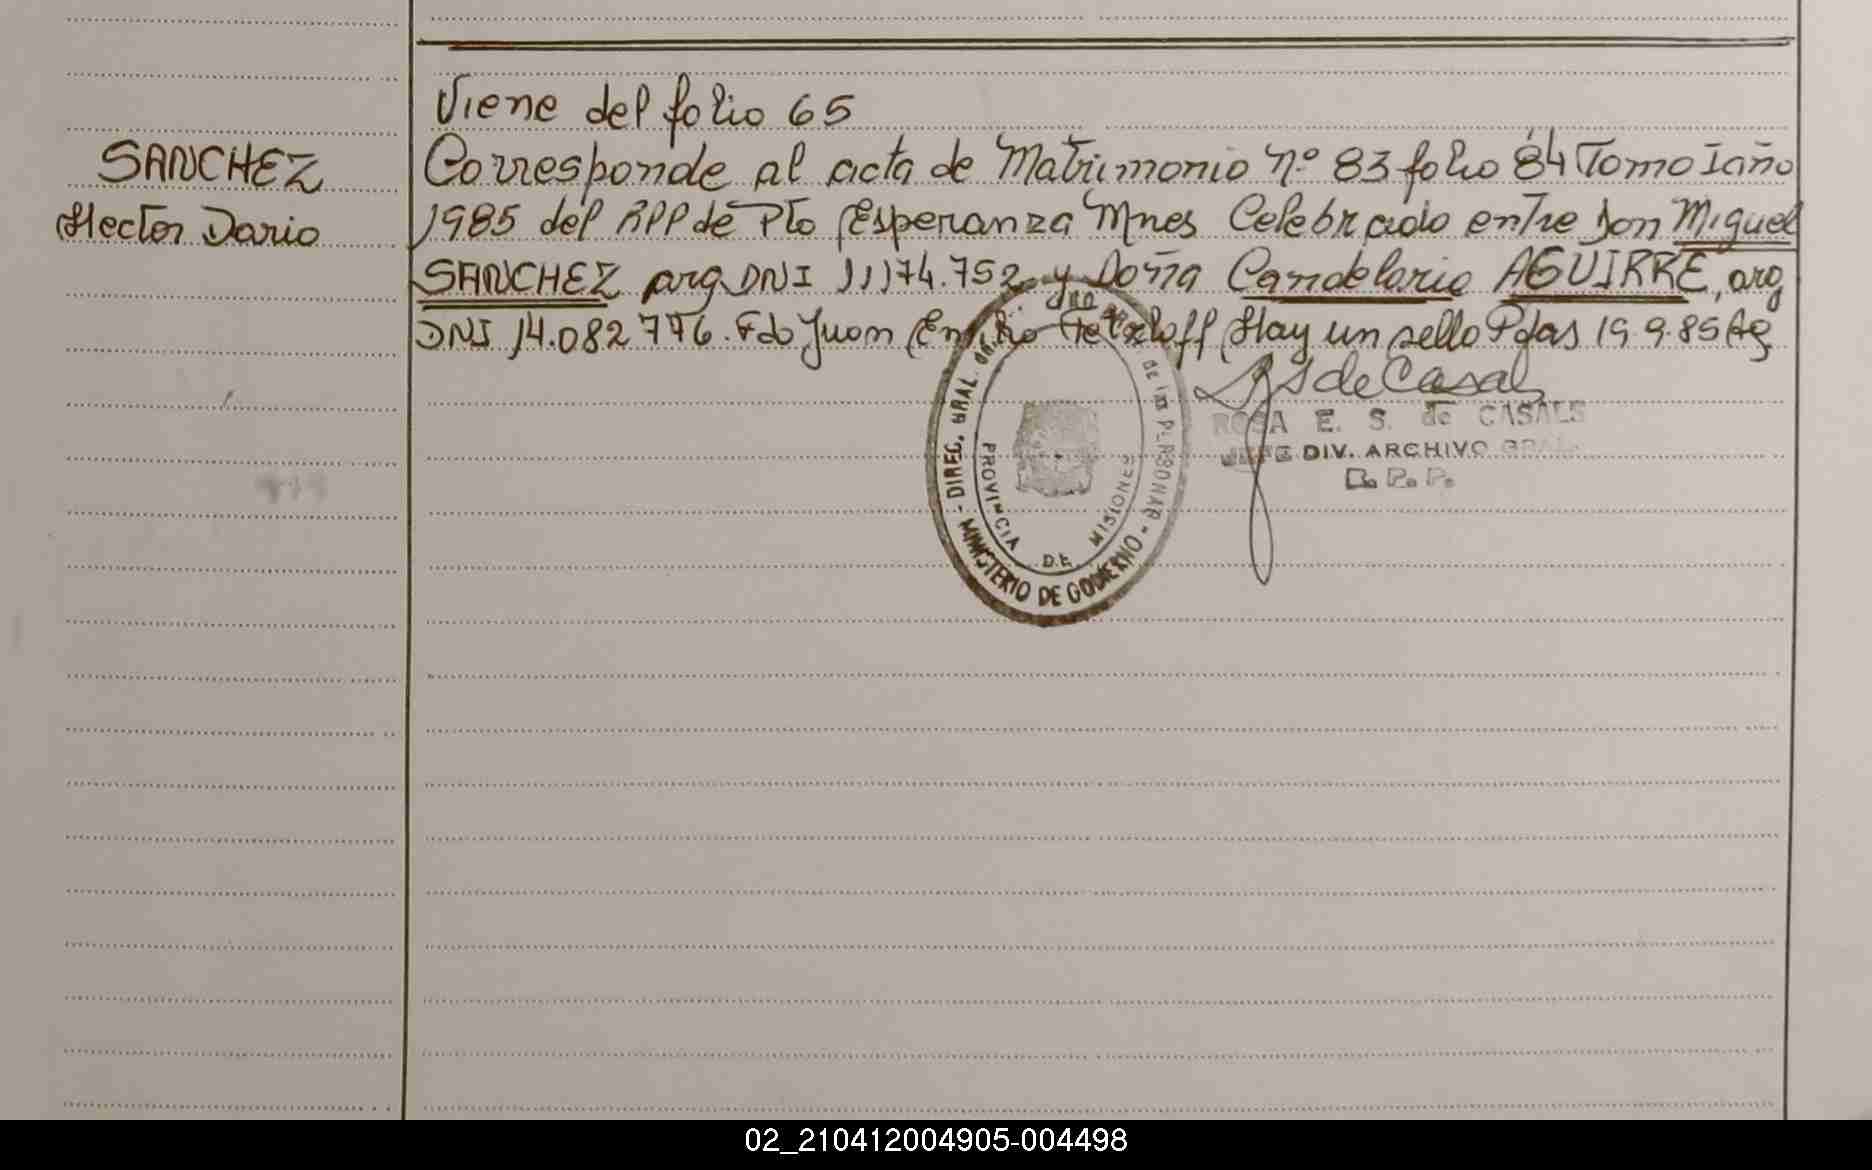 Viene del folio 65
SANCHEZ
Hector Dario
Corresponde al acta de Matrimonio Nº 83 folio 84 Tomo I año
1985 del RPP de Pto Esperanza Mnes Celebrado entre Don Miguel
SANCHEZ arg DNI 11174.752 y Doña Candelaria AGUIRRE, arg
DNI 14.082 776. Fdo Juan Emilio Hay un sello Pdas 19.9.85
de Casals
ROSA E. S. de CASALS
JEFE DIV. ARCHIVO GRAL.
R. P. P.
DIREC. GRAL. de las PERSONAS
MINISTERIO DE GOBIERNO
PROVINCIA DE MISIONES
02_210412004905-004498